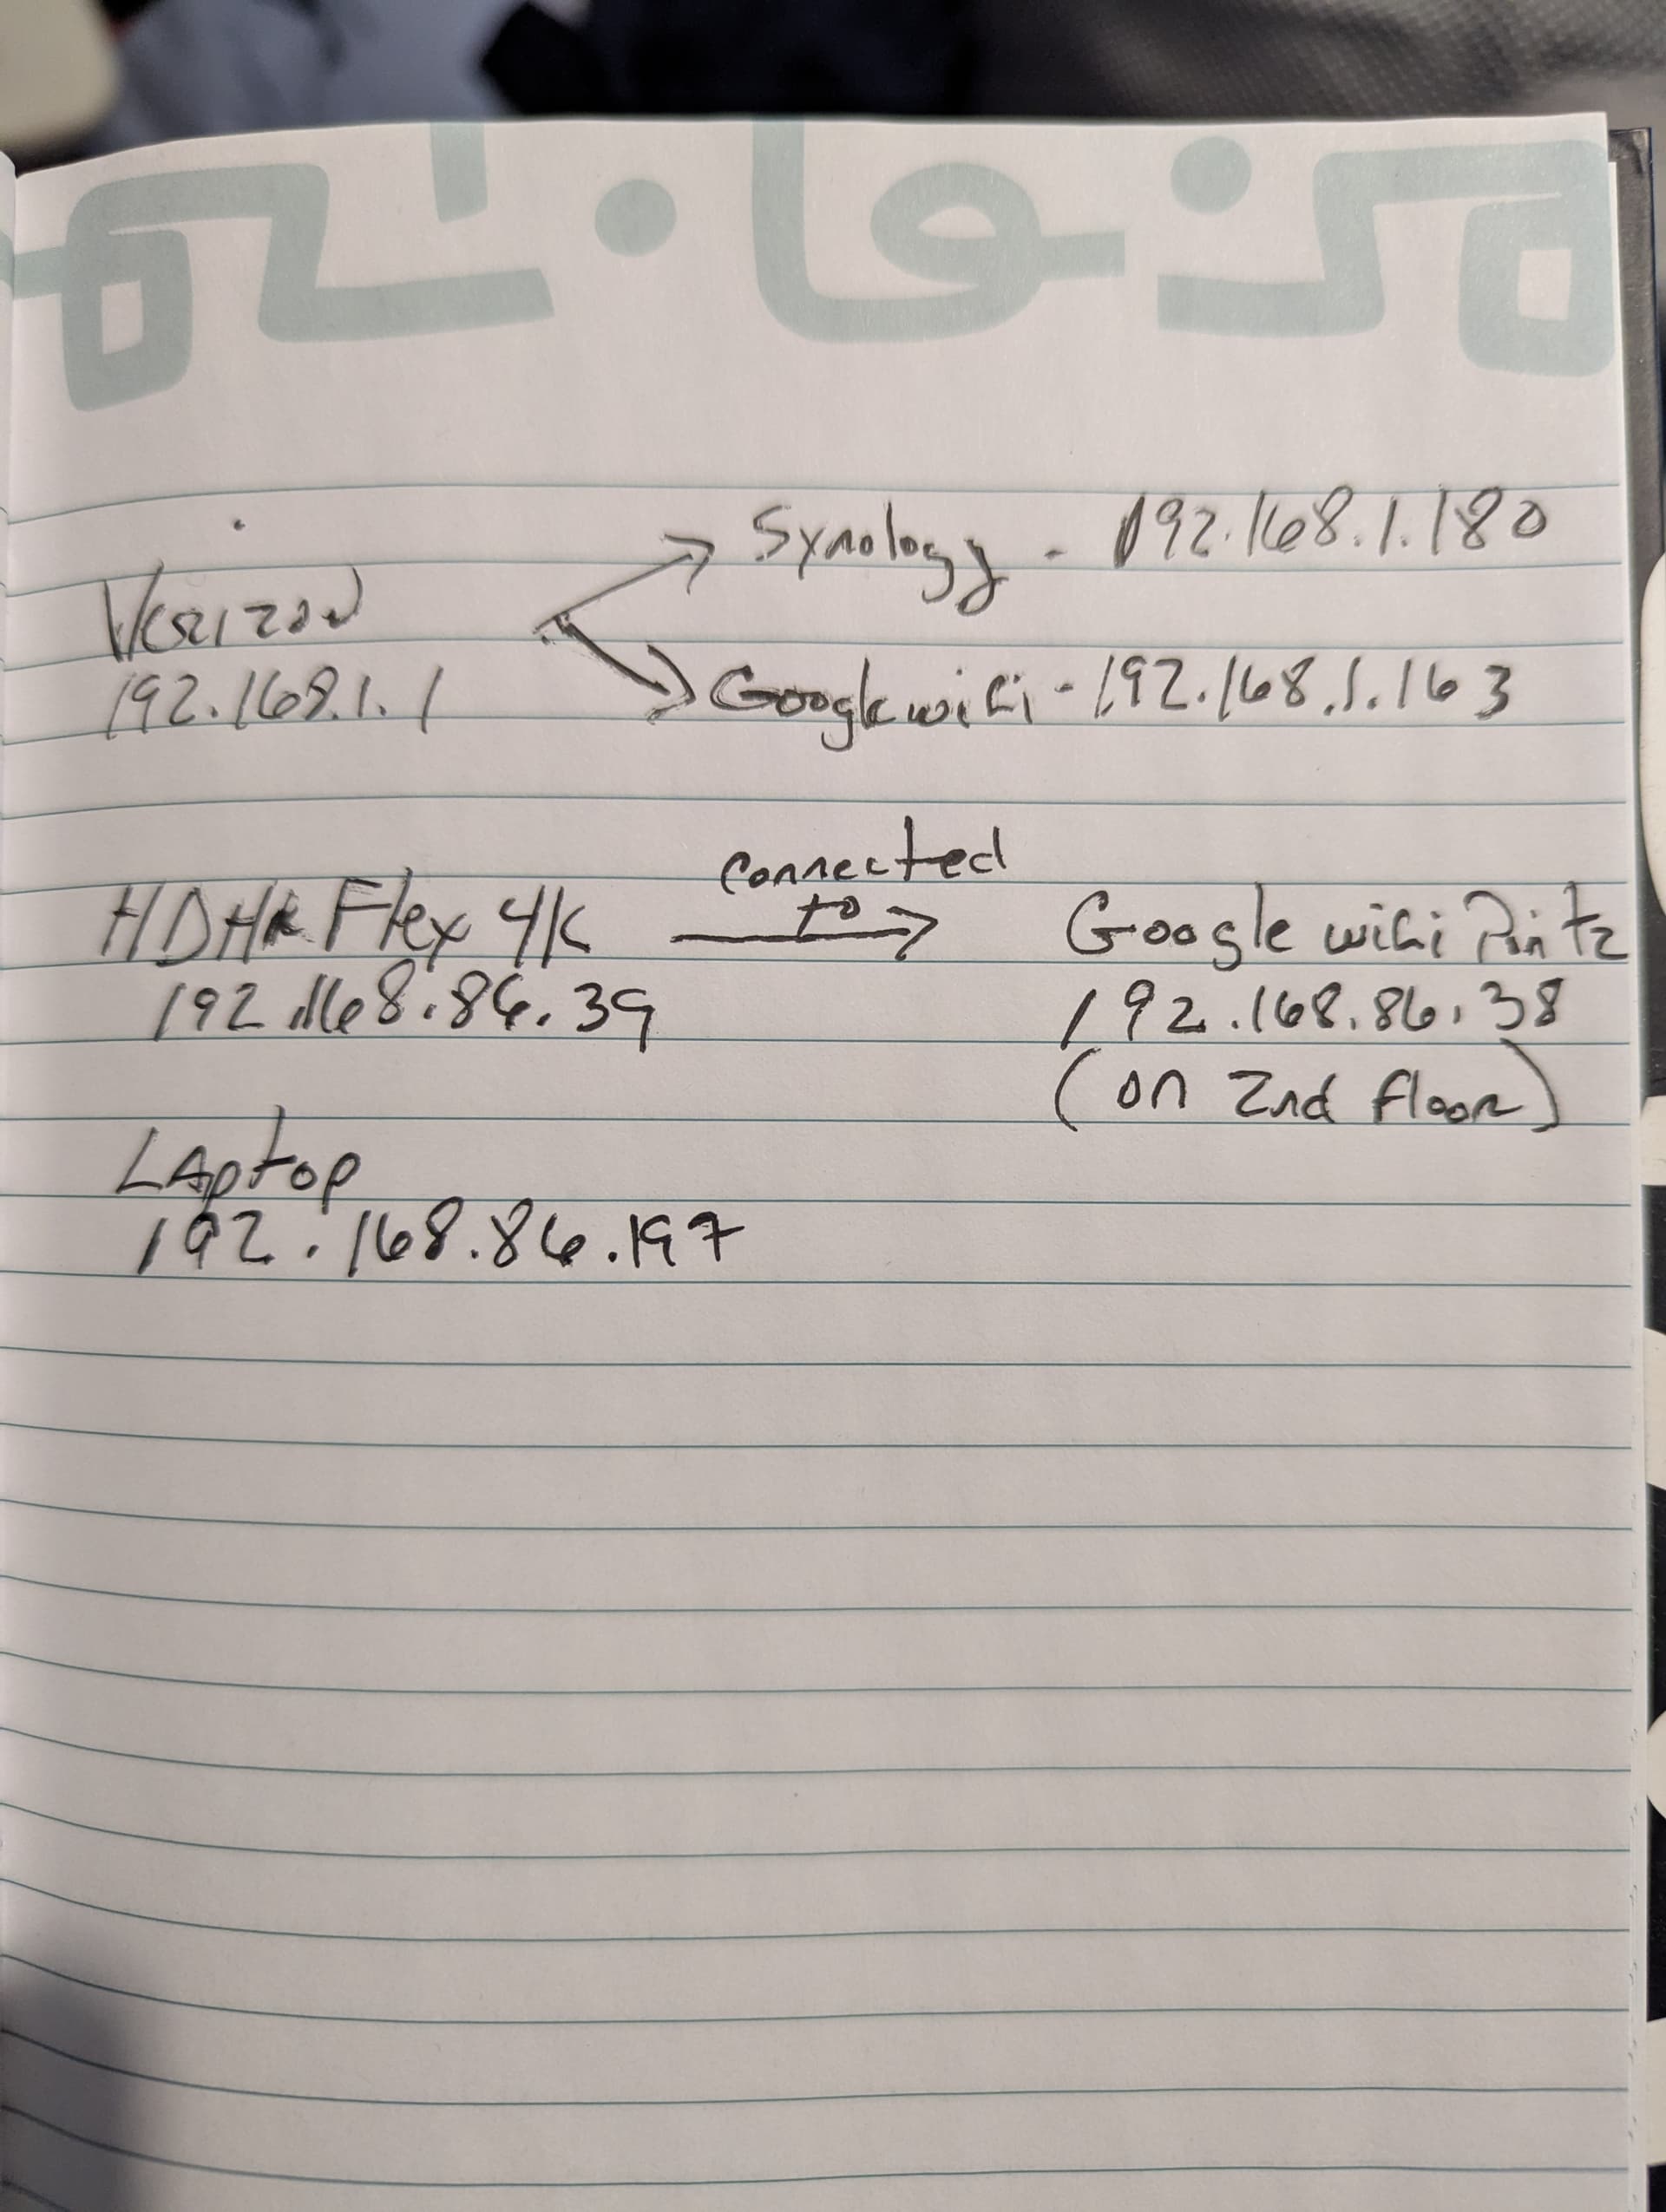 Verizon
192.168.1.1
Synology - 192.168.1.180
Google wifi - 192.168.1.163
HDHR Flex 4K
192.168.86.39
connected
to
Google wifi
192.168.86.38
(on 2nd floor)
Laptop
192.168.86.197